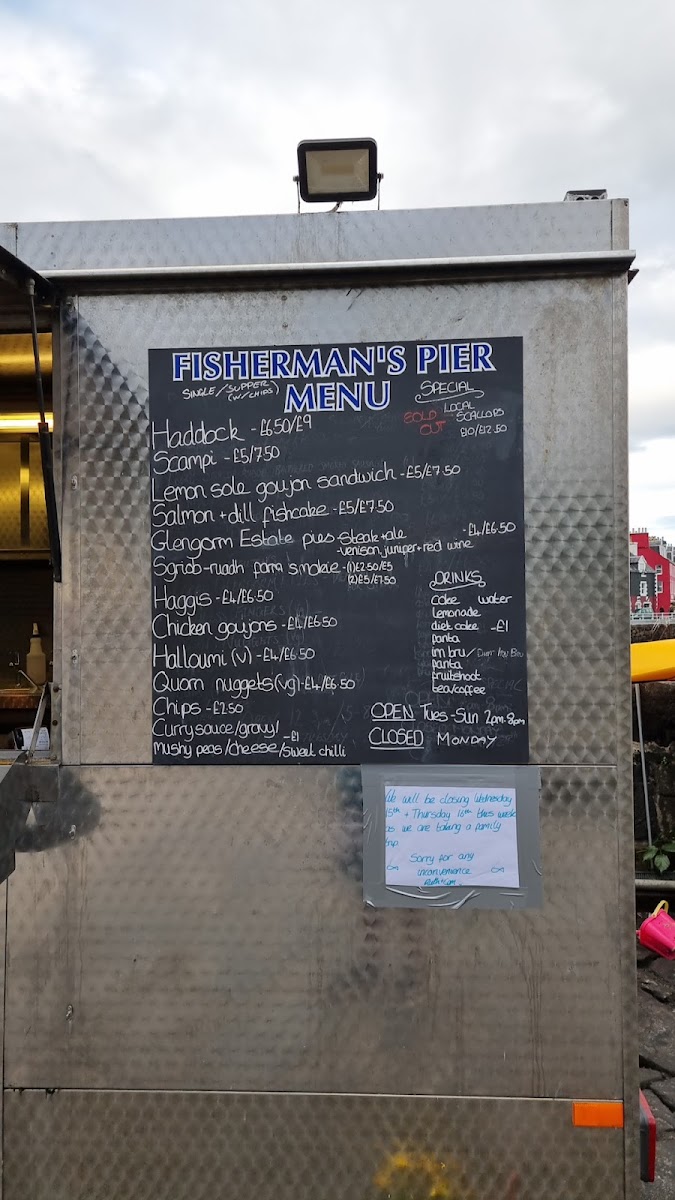 FISHERMAN'S PIER
MENU
SINGLE/SUPPER
(W/CHIPS)
SPECIAL
SOLD
OUT
LOCAL
SCALLOPS
£10/£12.50
Haddock - £6.50/£9
Scampi - £5/7.50
Lemon sole goujon sandwich - £5/£7.50
Salmon + dill fishcake - £5/£7.50
Glengorm Estate pies - Steak + ale - £4/£6.50
- venison, juniper + red wine
Sgriob-ruadh farm smokie - (1)£2.50/£5
(2)£5/£7.50
Haggis - £4/£6.50
Chicken goujons - £4/£6.50
Halloumi (v) - £4/£6.50
Quorn nuggets (vg) - £4/£6.50
Chips - £2.50
Curry sauce/gravy/ - £1
mushy peas/cheese/sweet chilli
DRINKS
coke water
lemonade
diet coke - £1
fanta
irn bru/ Diet Irn Bru
fanta
fruitshoot
tea/coffee
OPEN Tues-Sun 2pm-8pm
CLOSED MONDAY
We will be closing Wednesday
15th + Thursday 16th this week
as we are taking a family
trip.
Sorry for any
inconvenience